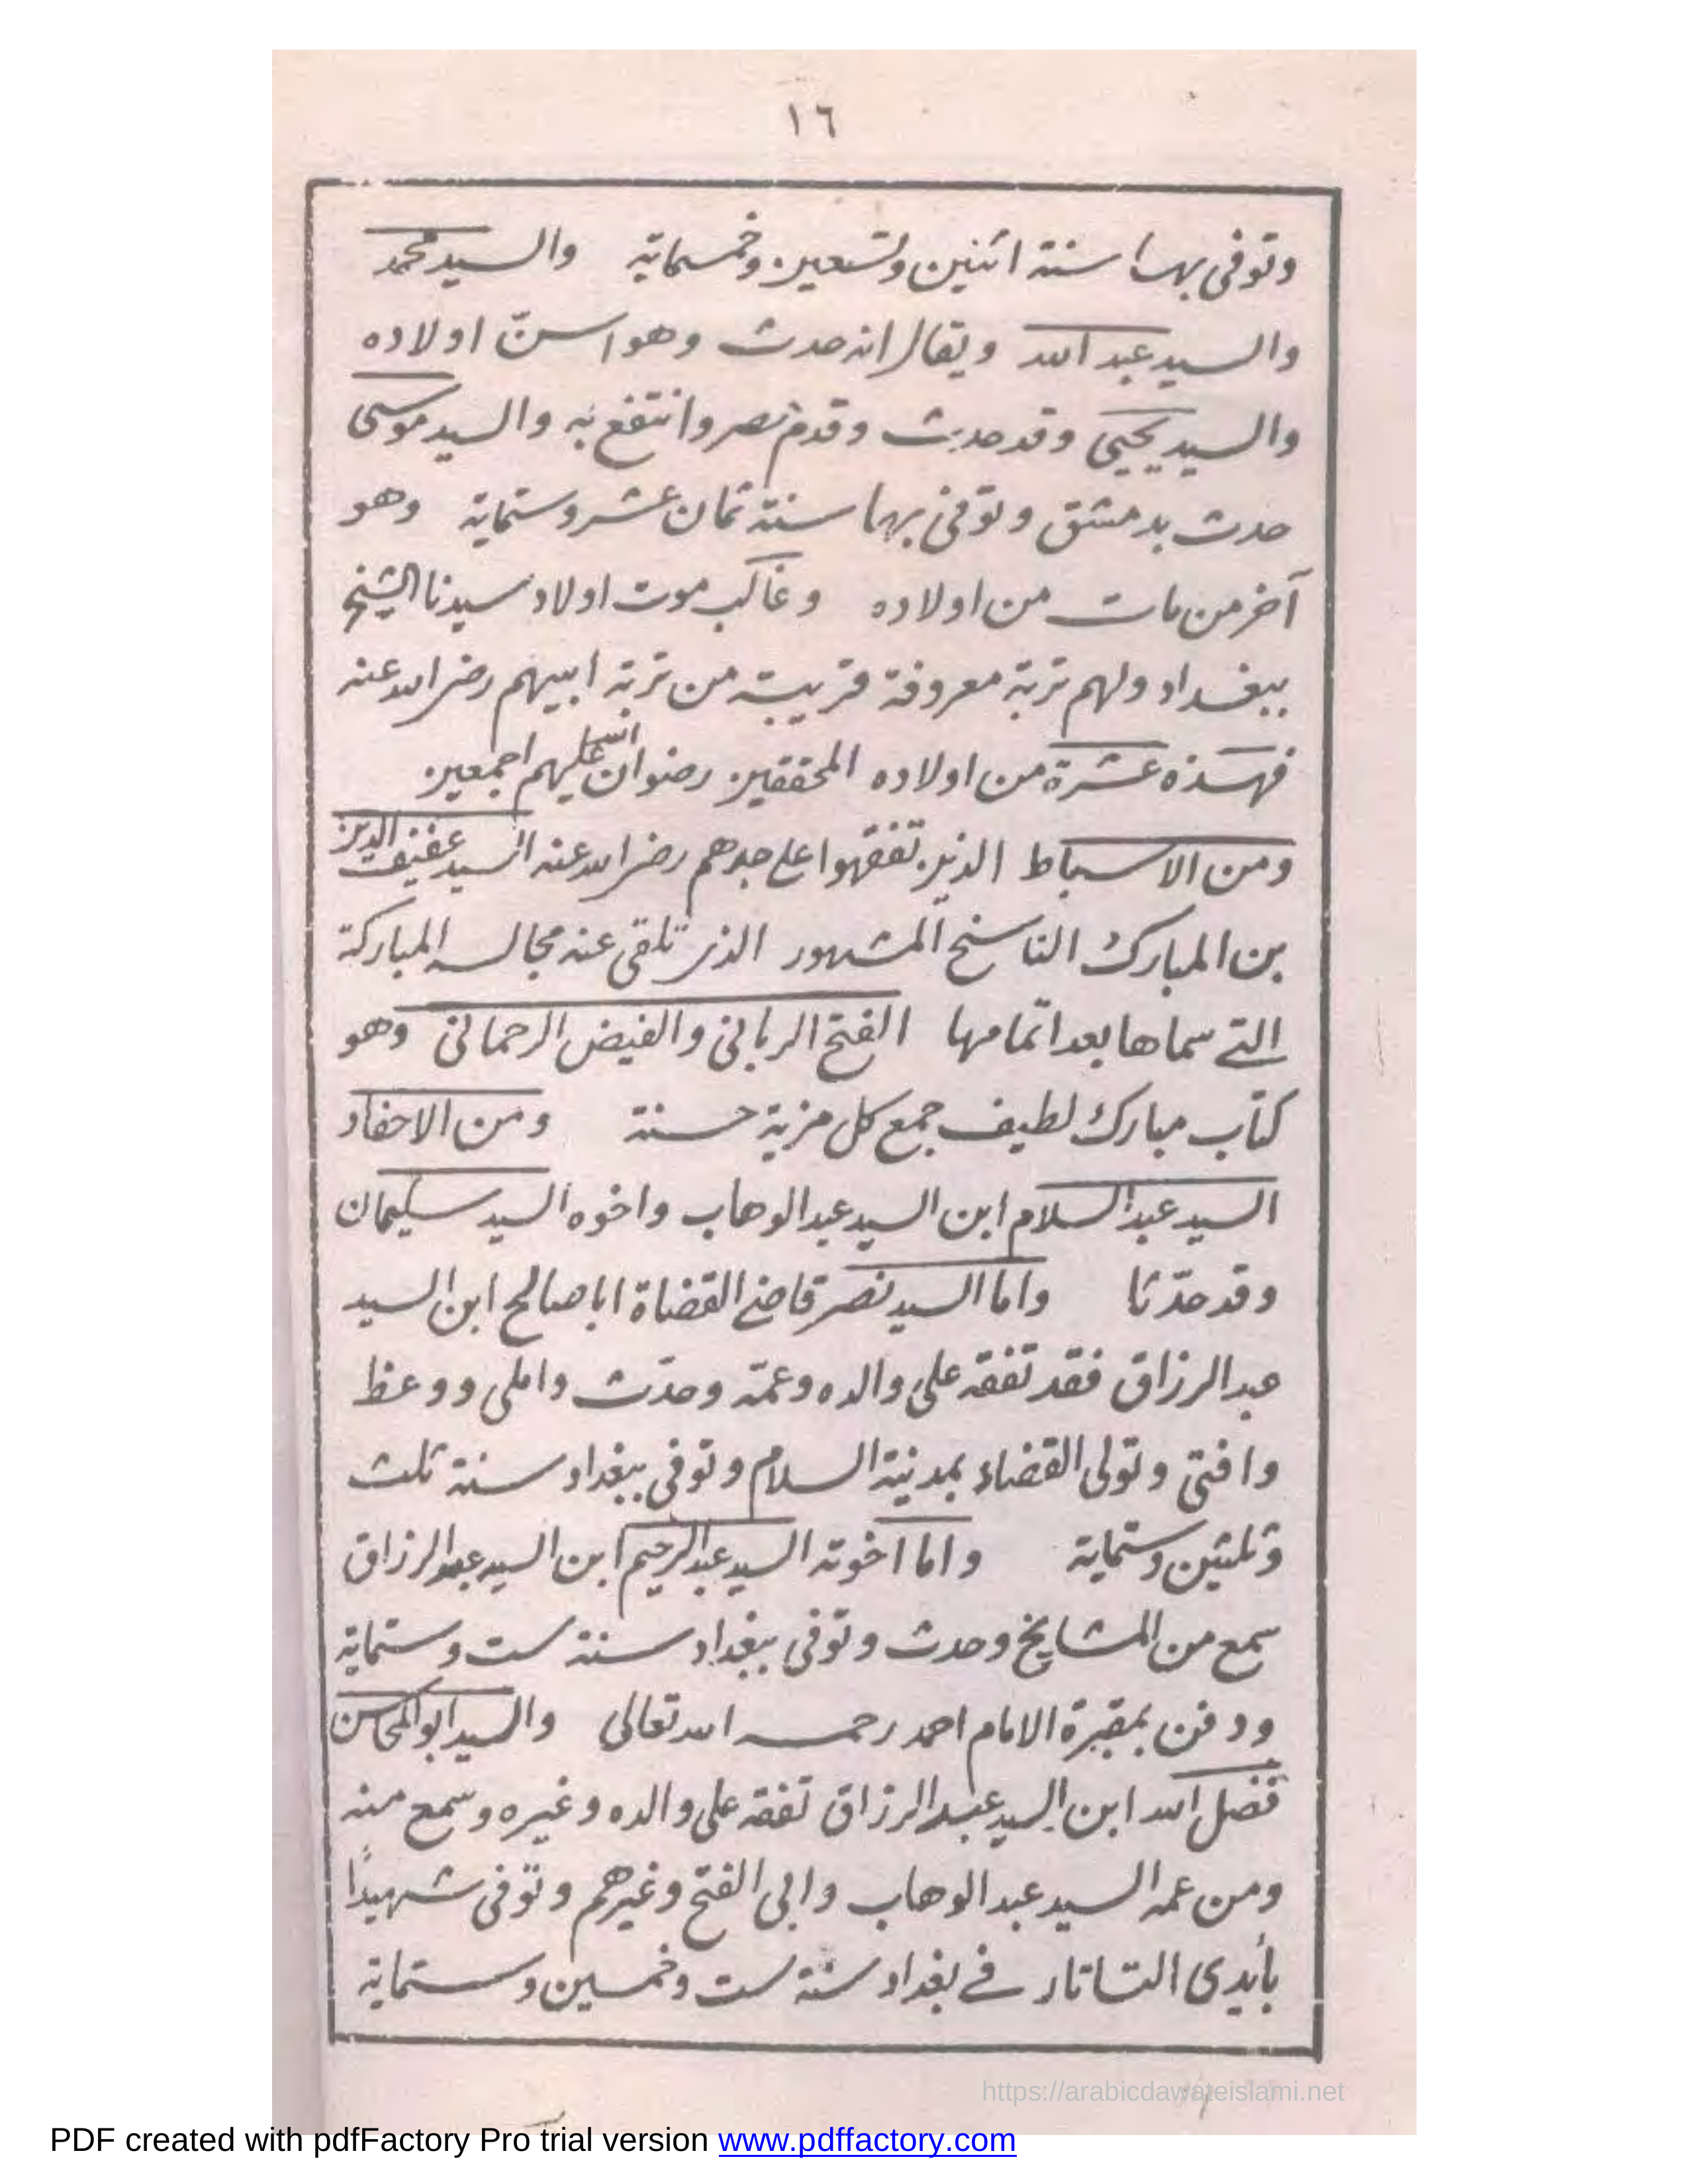 ١٦
وتوفى بها سنة اثنين وتسعين وخمسماية والسيد محمد
والسيد عبد الله ويقال انه حدث وهو اسنّ اولاده
والسيد يحيى وقد حدث وقدم مصر وانتفع به والسيد موسى
حدث بدمشق وتوفى بها سنة ثمان عشر وستماية وهو
آخر من مات من اولاده وغالب موت اولاد سيدنا الشيخ
ببغداد ولهم تربة معروفة قريبة من تربة ابيهم رضى الله عنه
فهذه عشرة من اولاده المحققين رضوان الله عليهم اجمعين
ومن الاسباط الذين تفقهوا على جدهم رضى الله عنه السيد عفيف الدين
بن المبارك الناسخ المشهور الذى تلقى عنه مجالسه المباركة
التى سماها بعد اتمامها الفتح الربانى والفيض الرحمانى وهو
كتاب مبارك لطيف جمع كل مزية حسنة ومن الاحفاد
السيد عبد السلام ابن السيد عبد الوهاب واخوه السيد سليمان
وقد حدّثا واما السيد نصر قاضى القضاة ابا صالح ابن السيد
عبد الرزاق فقد تفقه على والده وعمّه وحدّث واملى ووعظ
وافتى وتولى القضاء بمدينة السلام وتوفى ببغداد سنة ثلث
وثلثين وستماية واما اخوته السيد عبد الرحيم ابن السيد عبد الرزاق
سمع من المشايخ وحدث وتوفى ببغداد سنة ست وستماية
ودفن بمقبرة الامام احمد رحمه الله تعالى والسيد ابو المحاسن
فضل الله ابن السيد عبد الرزاق تفقه على والده وغيره وسمع منه
ومن عمه السيد عبد الوهاب وابى الفتح وغيرهم وتوفى شهيدًا
بأيدى التاتار فى بغداد سنة ست وخمسين وستماية
https://arabicdawateislami.net
PDF created with pdfFactory Pro trial version www.pdffactory.com